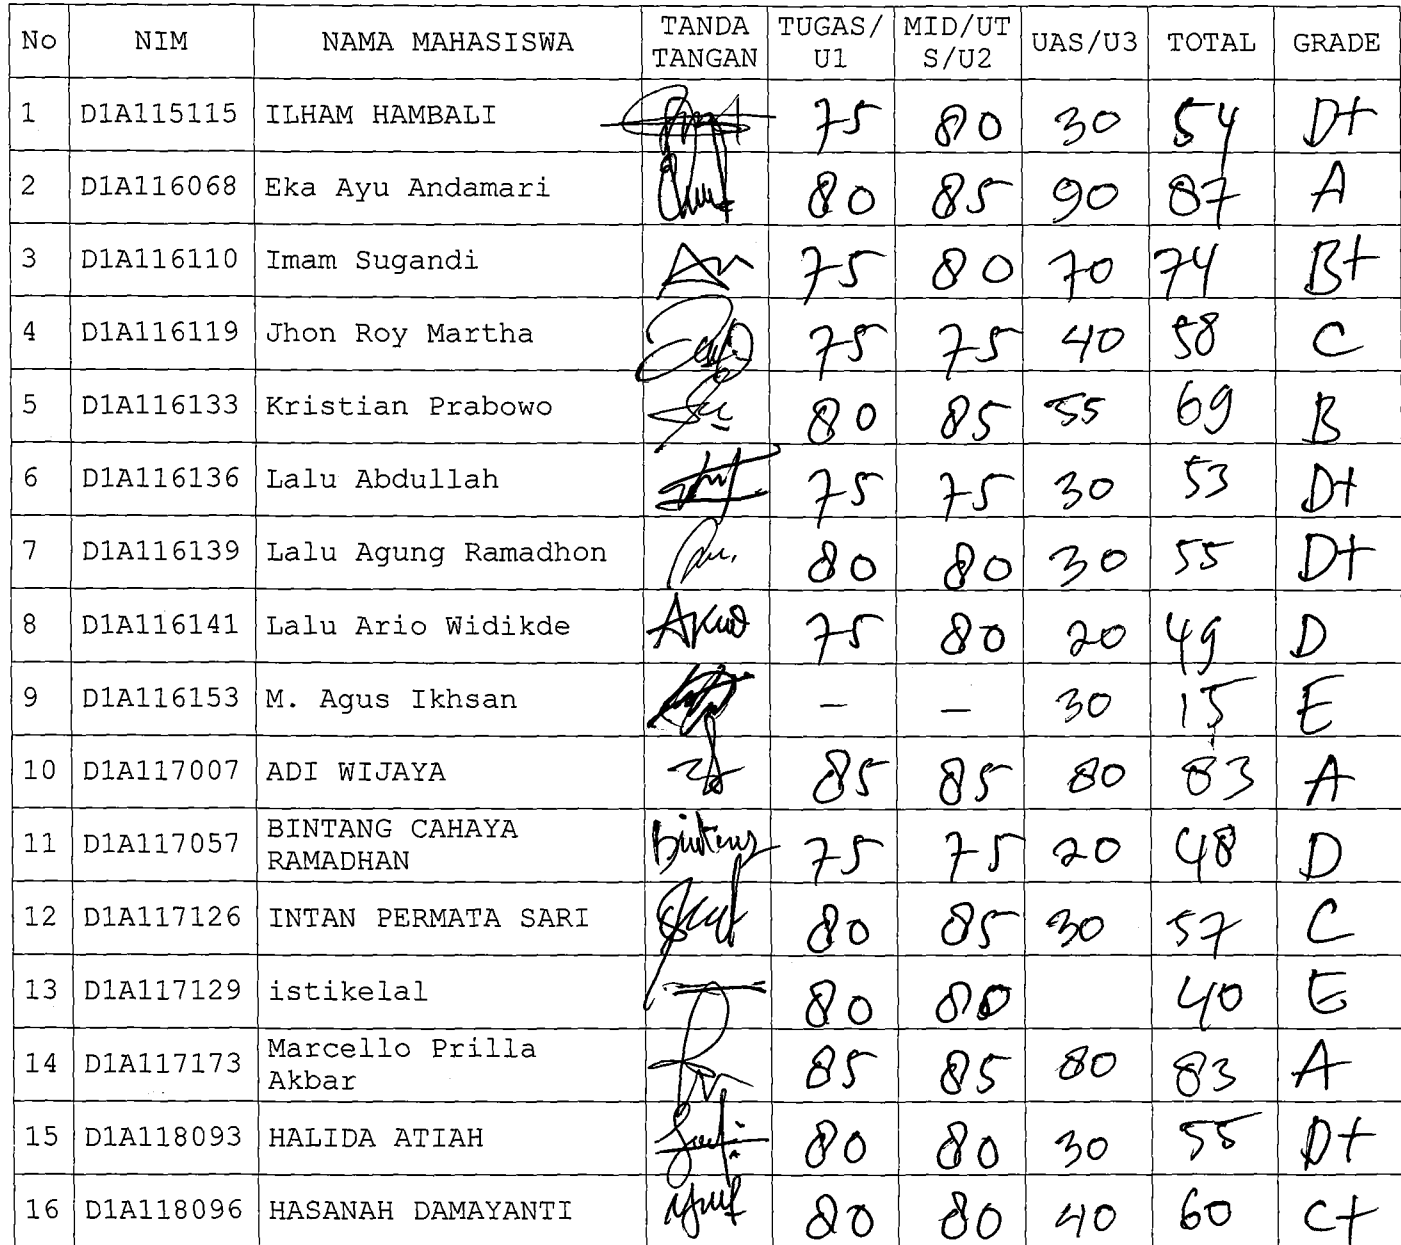 No NIM NAMA MAHASISWA TANDA TANGAN TUGAS/U1 MID/UTS/U2 UAS/U3 TOTAL GRADE
1 D1A115115 ILHAM HAMBALI 75 80 30 54 D+
2 D1A116068 Eka Ayu Andamari 80 85 90 87 A
3 D1A116110 Imam Sugandi 75 80 70 74 B+
4 D1A116119 Jhon Roy Martha 75 75 40 58 C
5 D1A116133 Kristian Prabowo 80 85 55 69 B
6 D1A116136 Lalu Abdullah 75 75 30 53 D+
7 D1A116139 Lalu Agung Ramadhon 80 80 30 55 D+
8 D1A116141 Lalu Ario Widikde 75 80 20 49 D
9 D1A116153 M. Agus Ikhsan – – 30 15 E
10 D1A117007 ADI WIJAYA 85 85 80 83 A
11 D1A117057 BINTANG CAHAYA RAMADHAN 75 75 20 48 D
12 D1A117126 INTAN PERMATA SARI 80 85 30 57 C
13 D1A117129 istikelal 80 80 40 E
14 D1A117173 Marcello Prilla Akbar 85 85 80 83 A
15 D1A118093 HALIDA ATIAH 80 80 30 55 D+
16 D1A118096 HASANAH DAMAYANTI 80 80 40 60 C+